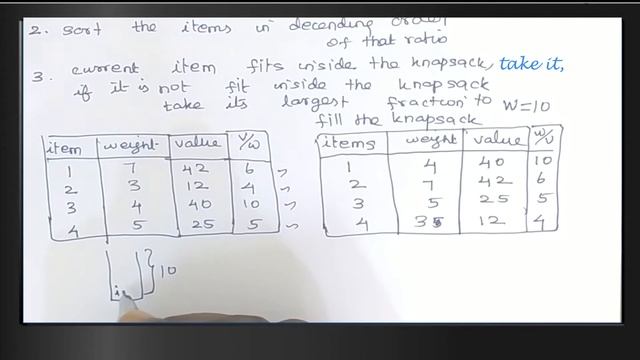 2. sort the items in decending order
of that ratio
3. current item fits inside the knapsack take it,
if it is not fit inside the knapsack
take its largest fraction to W=10
fill the knapsack
item weight value V/W
1 7 42 6
2 3 12 4
3 4 40 10
4 5 25 5
items weight value W/V
1 4 40 10
2 7 42 6
3 5 25 5
4 3 12 4
10